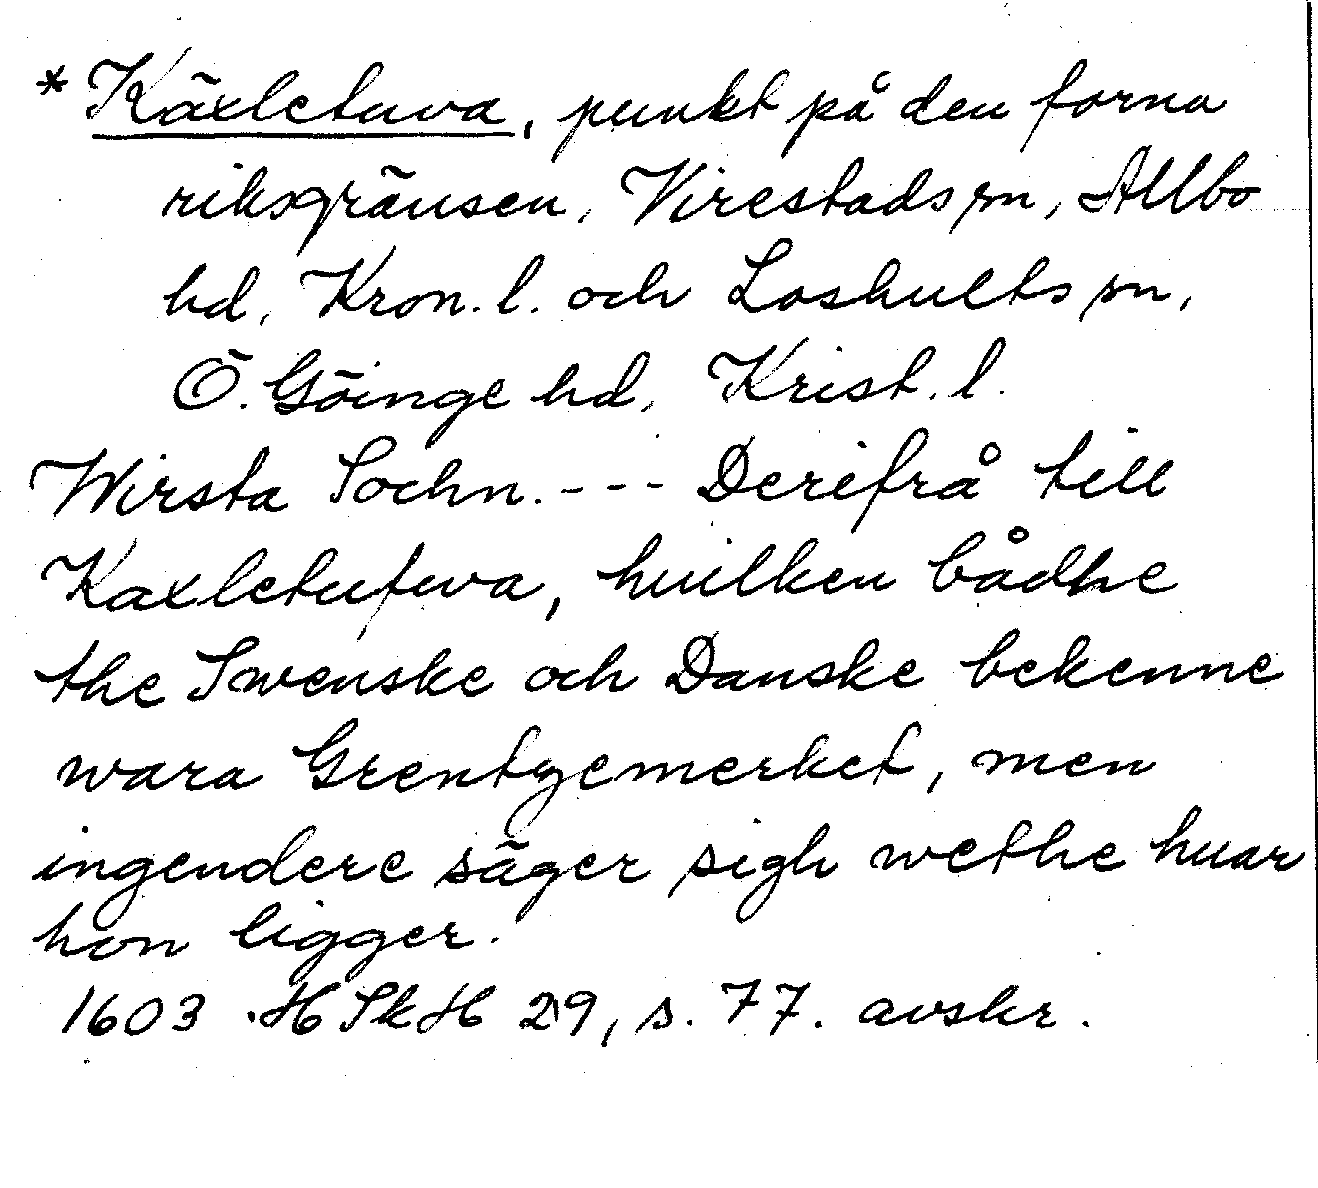 * Käxletuva, punkt på den forna
riksgränsen, Virestads sn, Allbo
hd, Kron. l. och Loshults sn,
Ö. Göinge hd, Krist. l.
Wirsta Sochn. - - - Derifrå till
Kaxletufwa, huilken bådhe
the Swenske och Danske bekenne
wara Grentzemerket, men
ingendere säger sigh wethe huar
hon ligger.
1603 HSkH 29, s. 77. avskr.